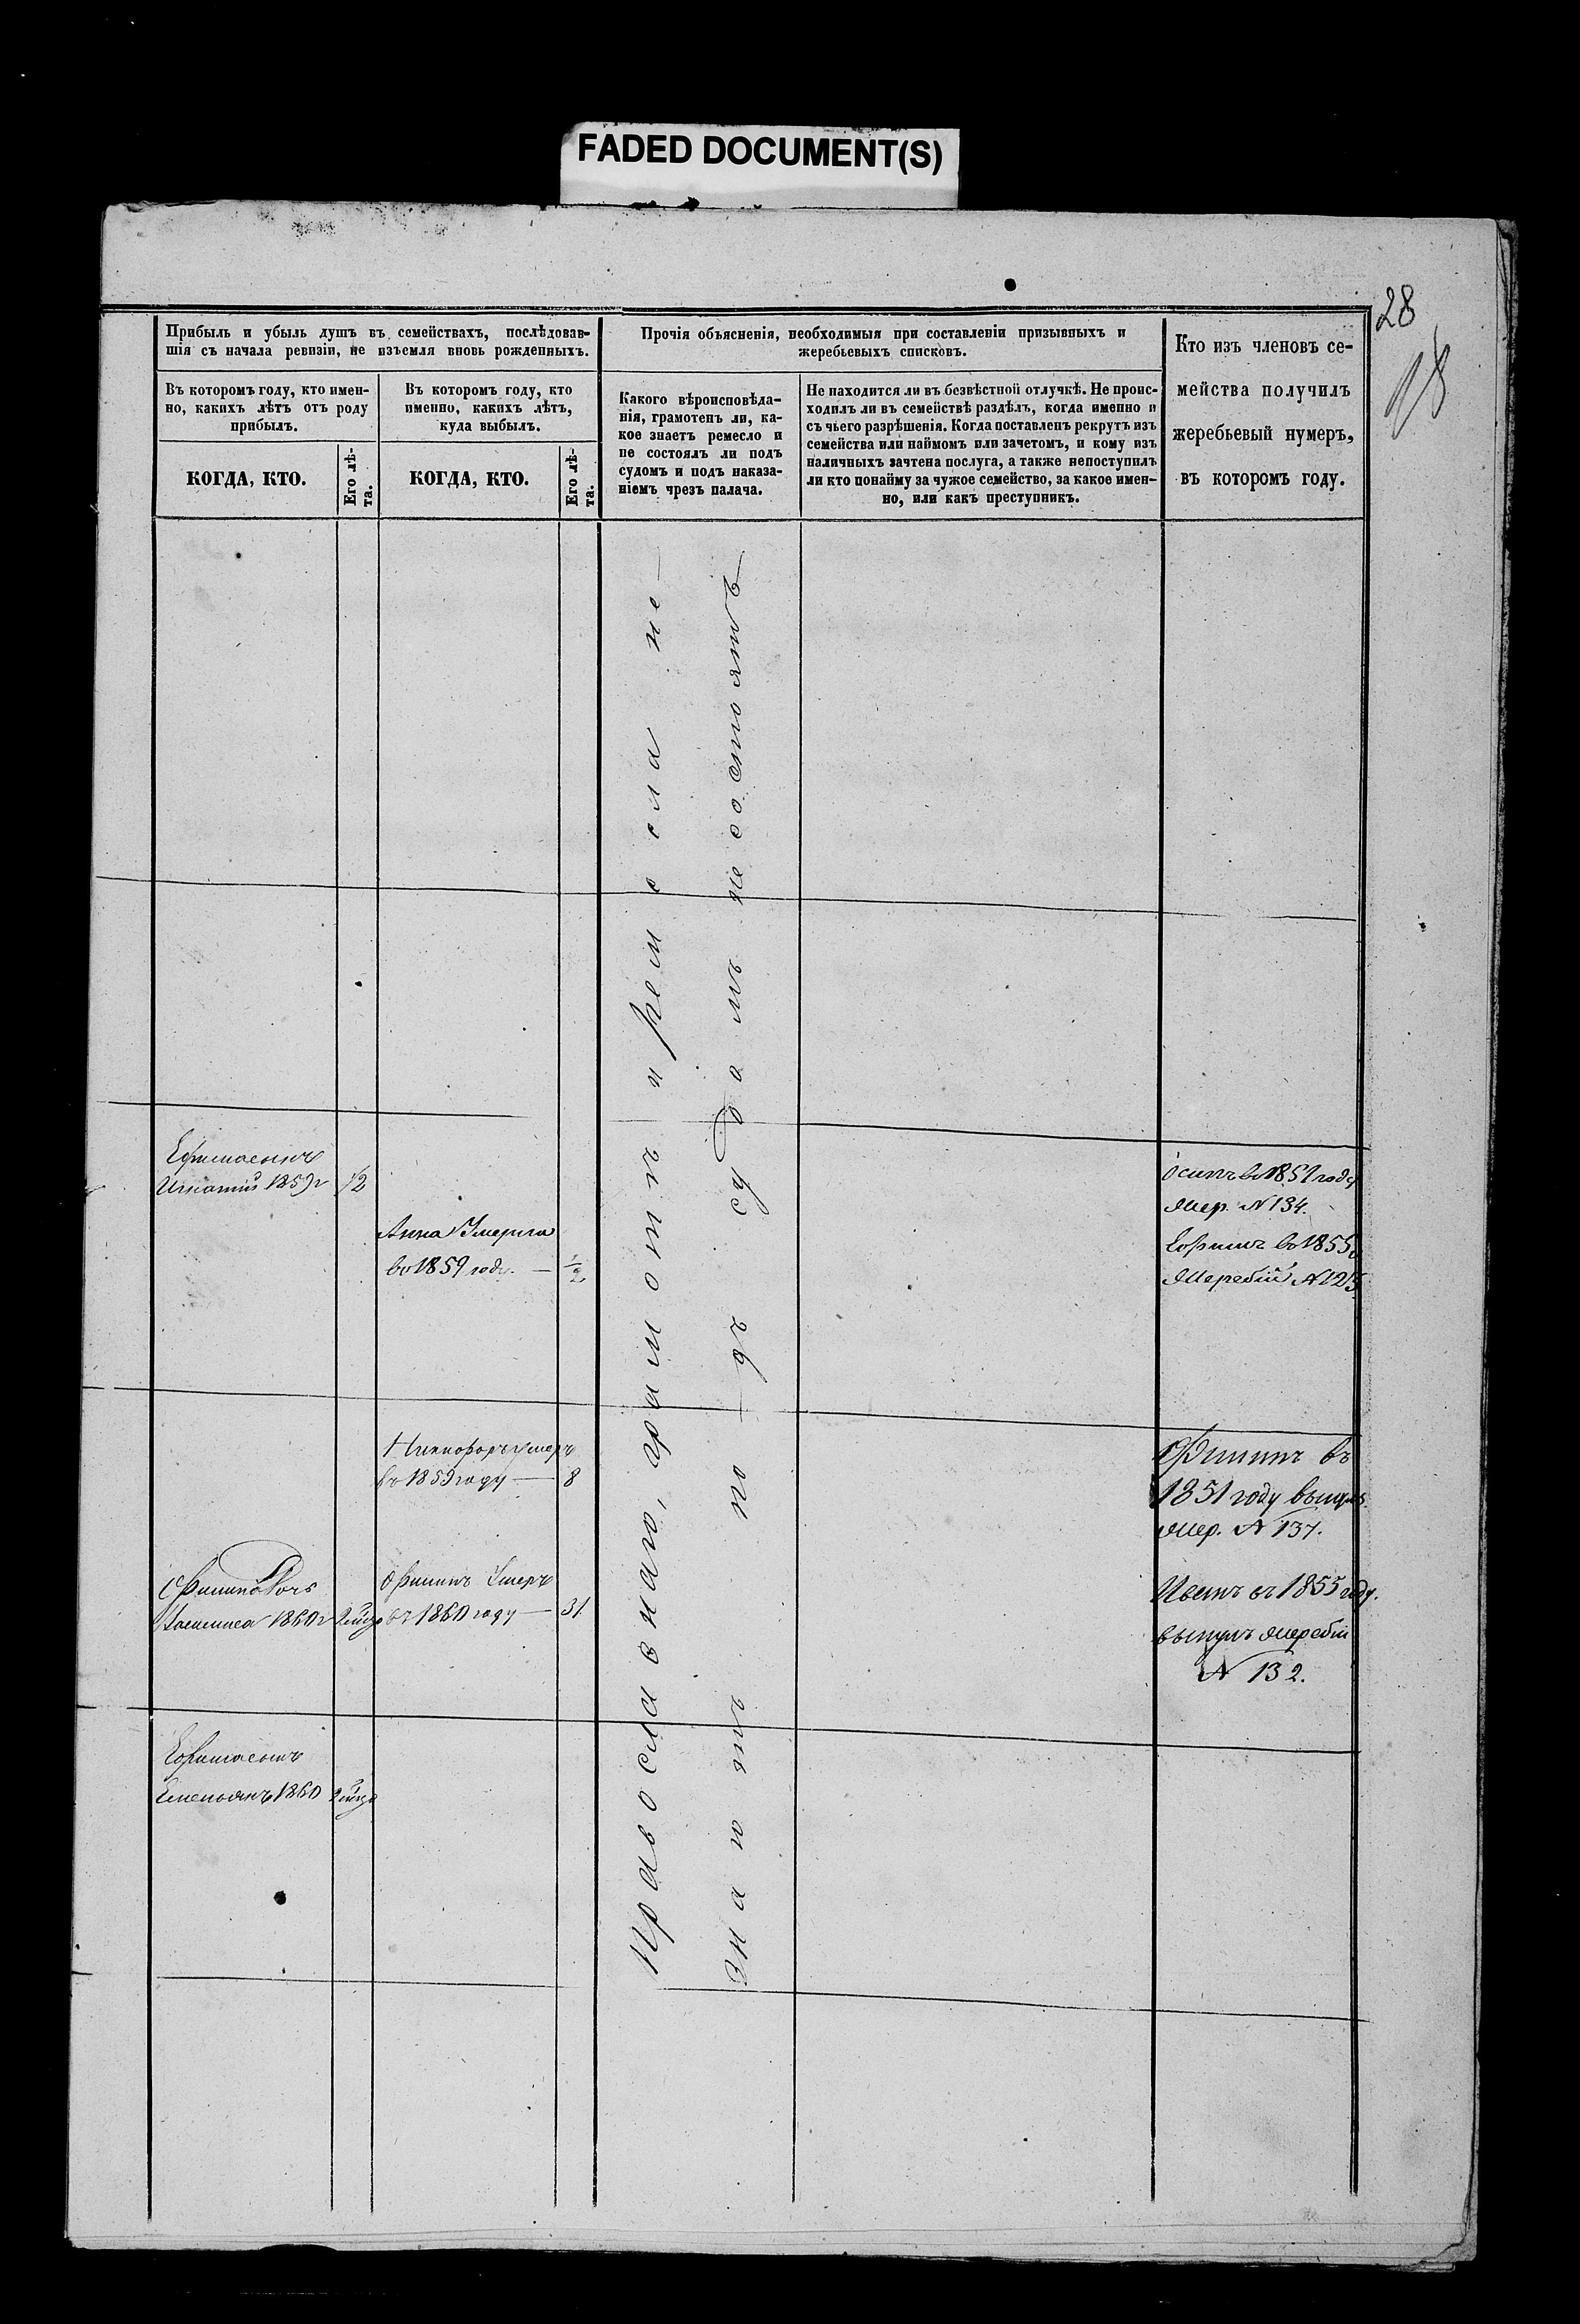 FADED DOCUMENT(S)
28
Прибыль и убыль душъ въ семействахъ, послѣдовав-
шія съ начала ревизіи, не изъемля вновь рожденныхъ.
Въ которомъ году, кто имен-
но, какихъ лѣтъ отъ роду
прибылъ.
КОГДА, КТО.
Его лѣ-
та.
Въ которомъ году, кто
именно, какихъ лѣтъ,
куда выбылъ.
КОГДА, КТО.
Его лѣ-
та.
Прочія объясненія, необходимыя при составленіи призывныхъ и
жеребьевыхъ списковъ.
Какого вѣроисповѣда-
нія, грамотенъ ли, ка-
кое знаетъ ремесло и
не состоялъ ли подъ
судомъ и подъ наказа-
ніемъ чрезъ палача.
Не находится ли въ безвѣстной отлучкѣ. Не проис-
ходилъ ли въ семействѣ раздѣлъ, когда именно и
съ чьего разрѣшенія. Когда поставленъ рекрутъ изъ
семейства или наймомъ или зачетомъ, и кому изъ
наличныхъ зачтена послуга, а также непоступилъ
ли кто понайму за чужое семейство, за какое имен-
но, или какъ преступникъ.
Кто изъ членовъ се-
мейства получилъ
жеребьевый нумеръ,
въ которомъ году.
Ефима сынъ
Игнатій 1859 г 1/2
Анна Умерла
во 1859 году. — 1/2
Никифоръ умеръ
въ 1859 году — 8
Филипа дочь
1860 г
Филипъ Умеръ
въ 1860 году — 31
Ефима сынъ
Емельянъ 1860
Православнаго, грамотъ и ремесла не
знаютъ подъ судомъ не состоятъ
Осипъ во 1851 году
жер. № 134.
Ефимъ во 1855
жеребій № 125
Филипъ въ
1851 году вынулъ
жер. № 137.
въ 1855 году.
вынулъ жеребій
№ 132.